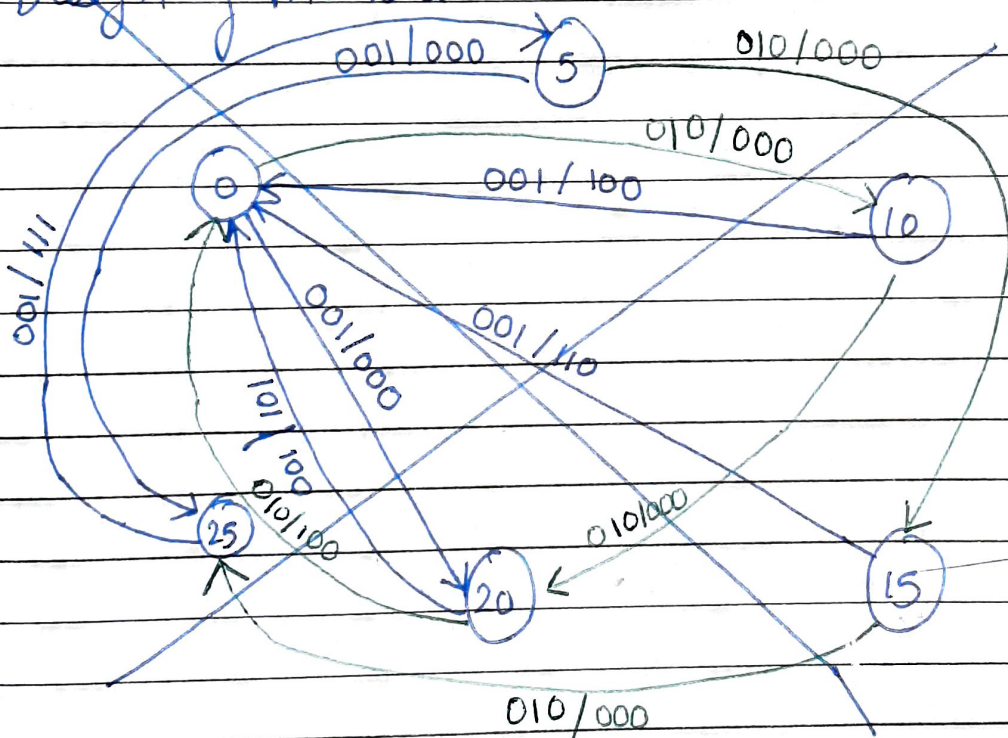 5
001/000
010/000
010/000
0
001/100
10
001/111
001/000
001/110
101/100
010/100
010/000
25
20
15
010/000